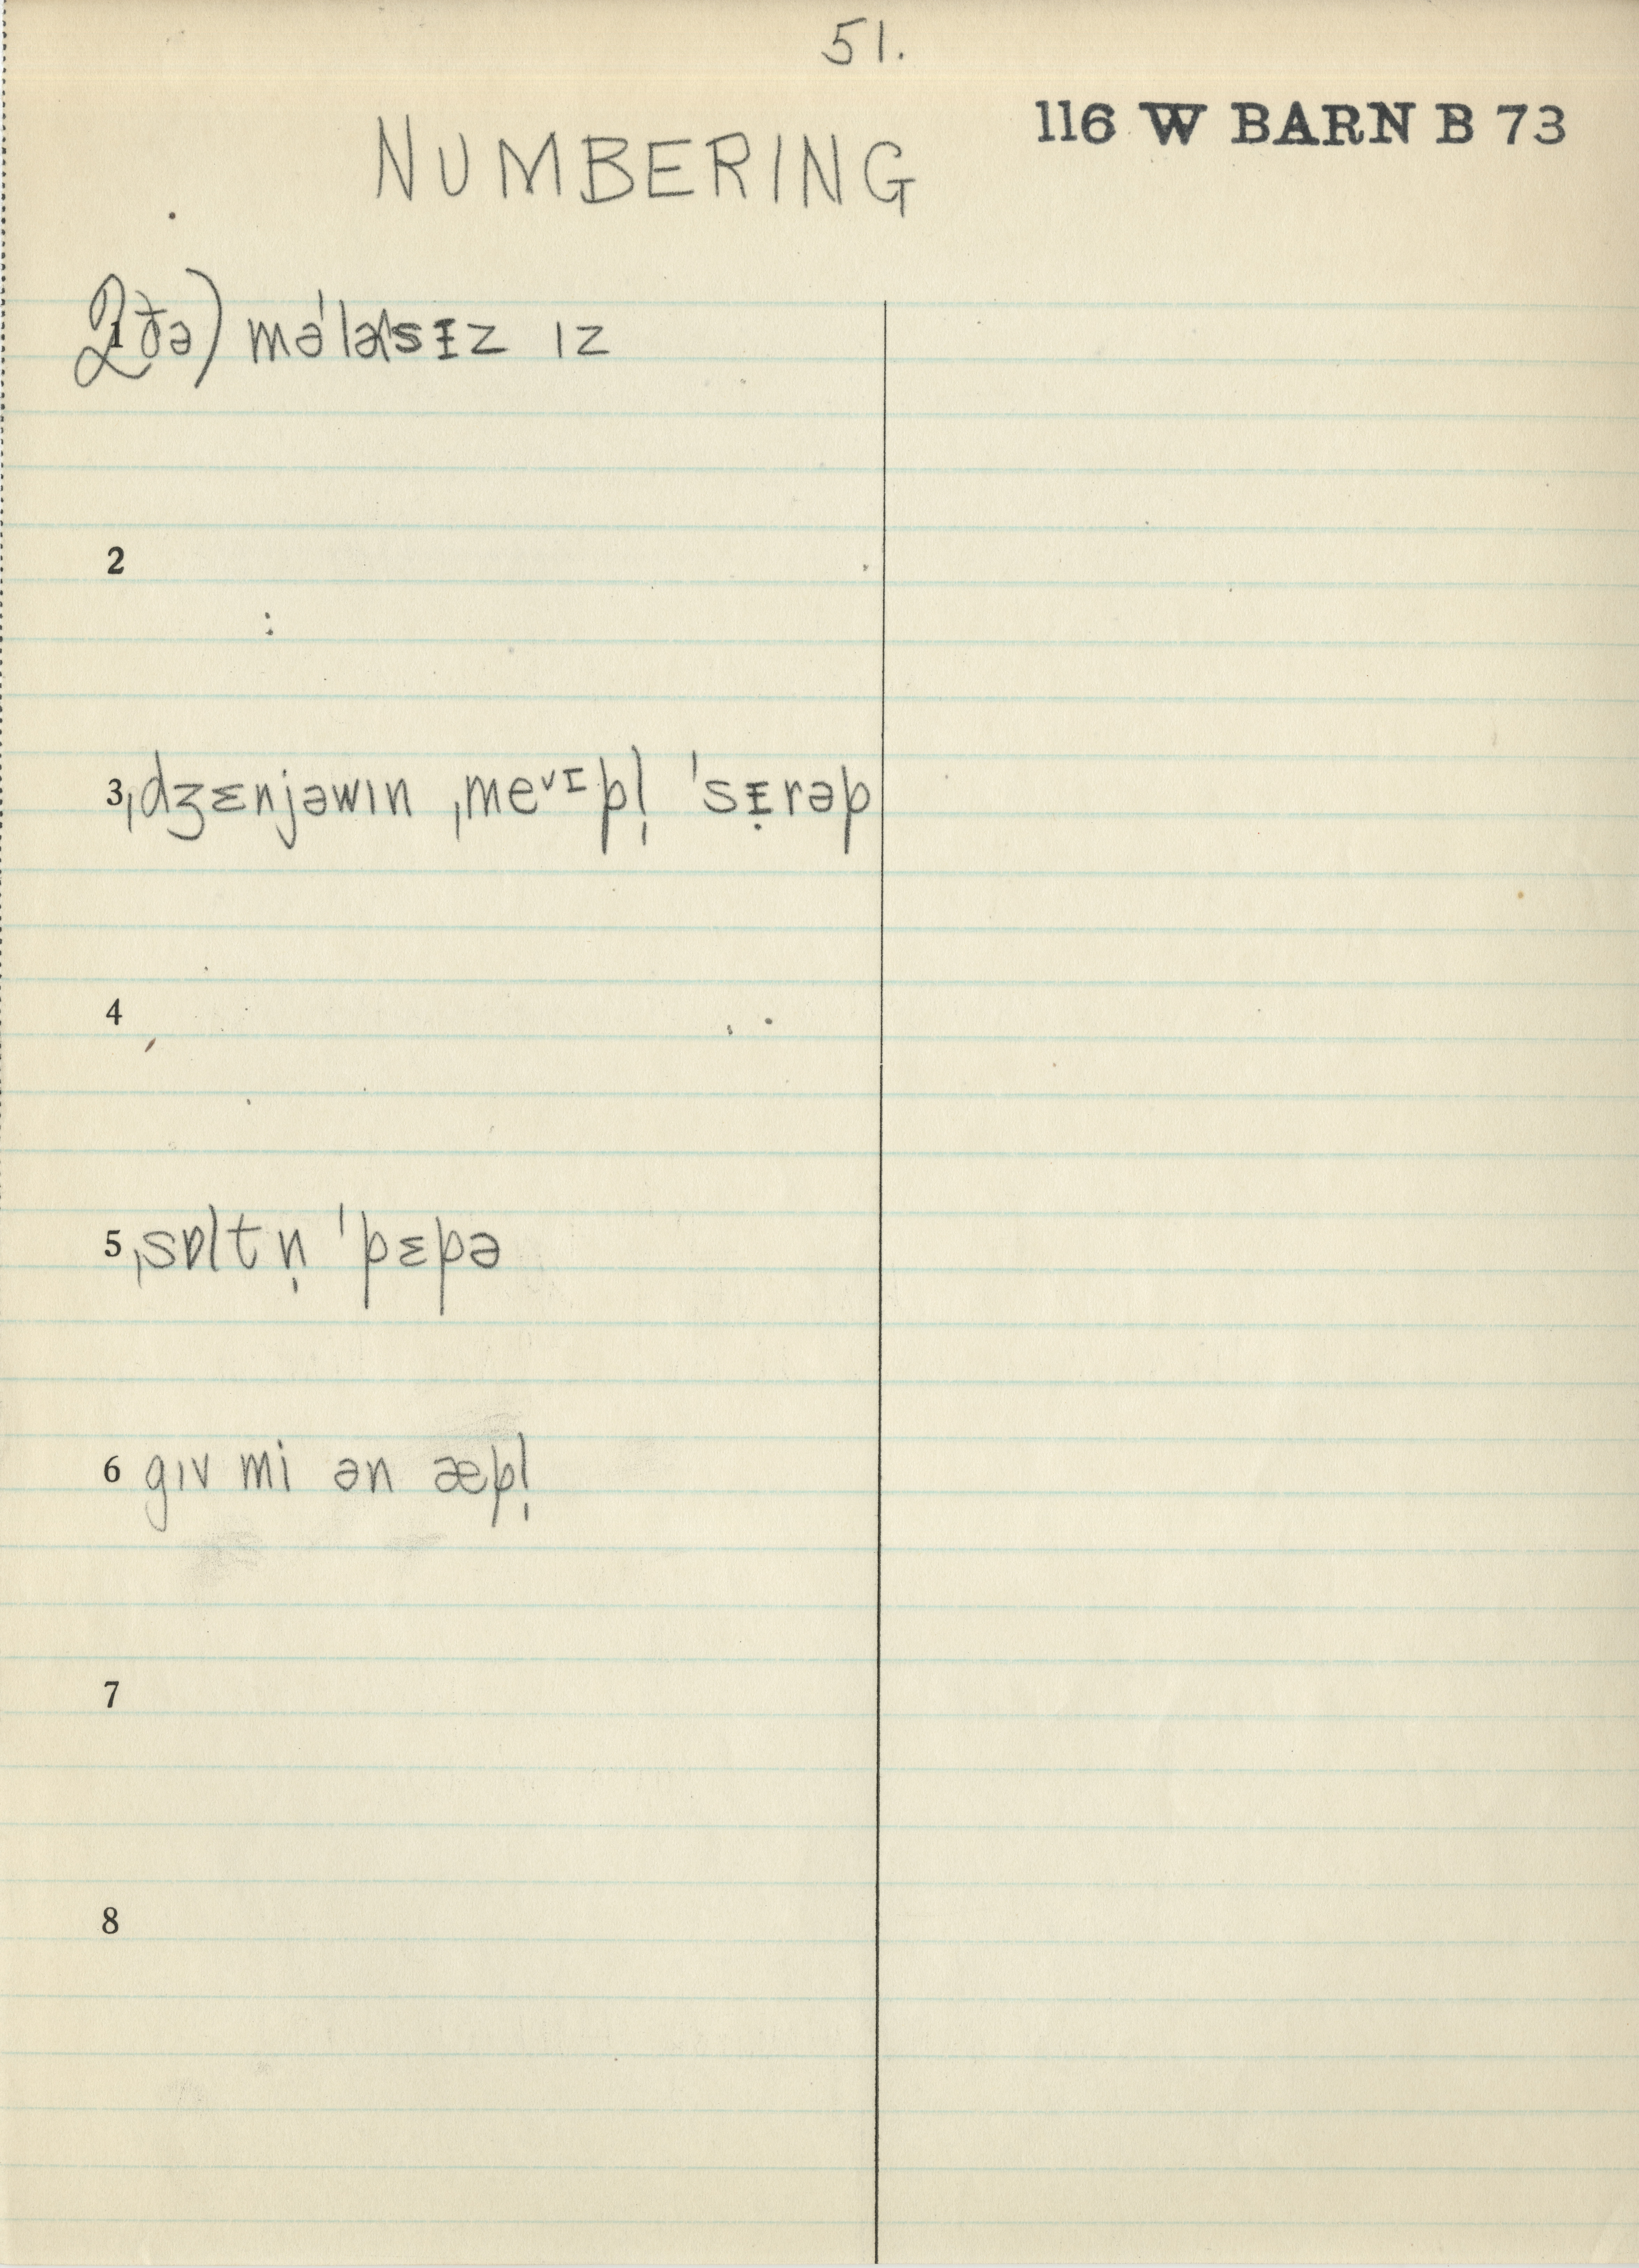 51.
116 W BARN B 73
NUMBERING
1 ðə) məˈlasɪz ɪz
2
3 ˌdʒɛnjəwɪn ˌmeᵛᶦpl̩ ˈsɪ̣rəp
4
5 ˌsɒltn̩ ˈpɛpə
6 gɪv mi ən æpl̩
7
8